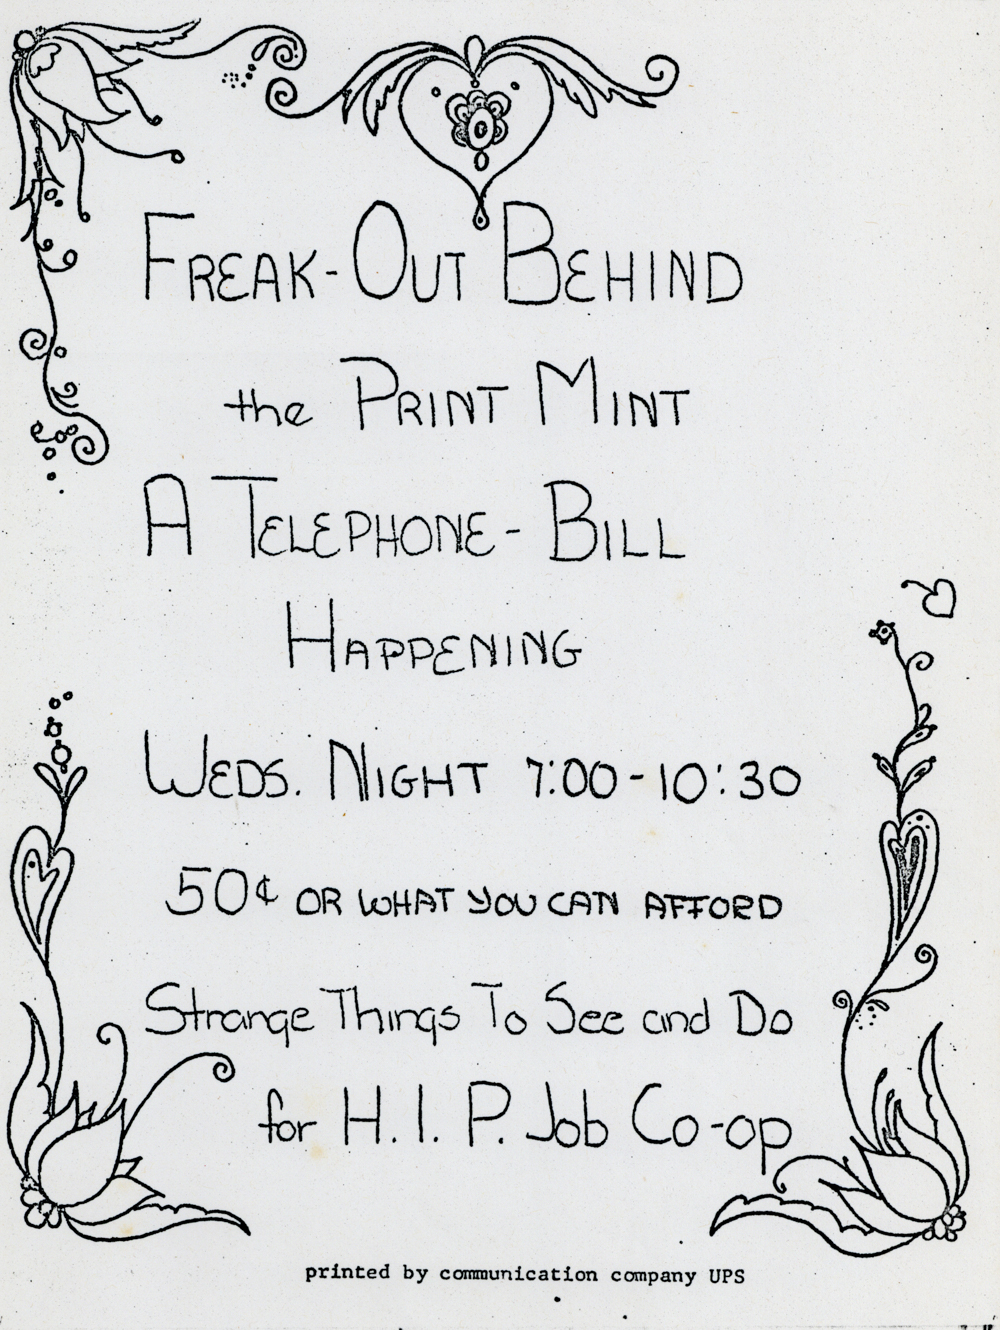 FREAK-OUT BEHIND
the PRINT MINT
A TELEPHONE-BILL
HAPPENING
WEDS. NIGHT 7:00-10:30
50¢ OR WHAT YOU CAN AFFORD
Strange Things To See and Do
for H.I.P. Job Co-op
printed by communication company UPS